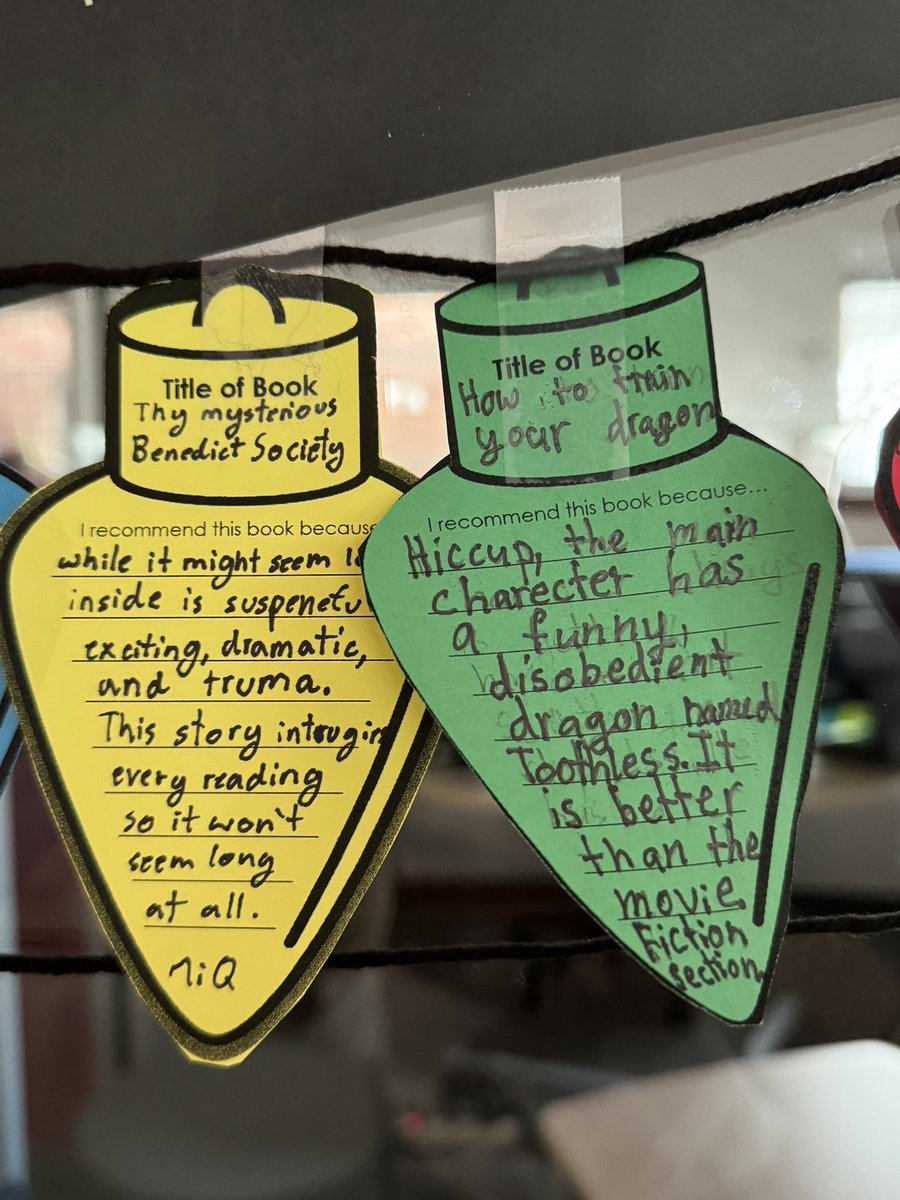 Title of Book
Thy mysterious
Benedict Society
I recommend this book because
while it might seem
inside is
exciting, dramatic,
and truma.
This story
every reading
so it won't
seem long
at all.
Title of Book
How to train
your dragon
I recommend this book because...
Hiccup, the main
charecter has
a funny,
disobedient
dragon named
Toothless. It
is better
than the
movie.
Fiction
section.